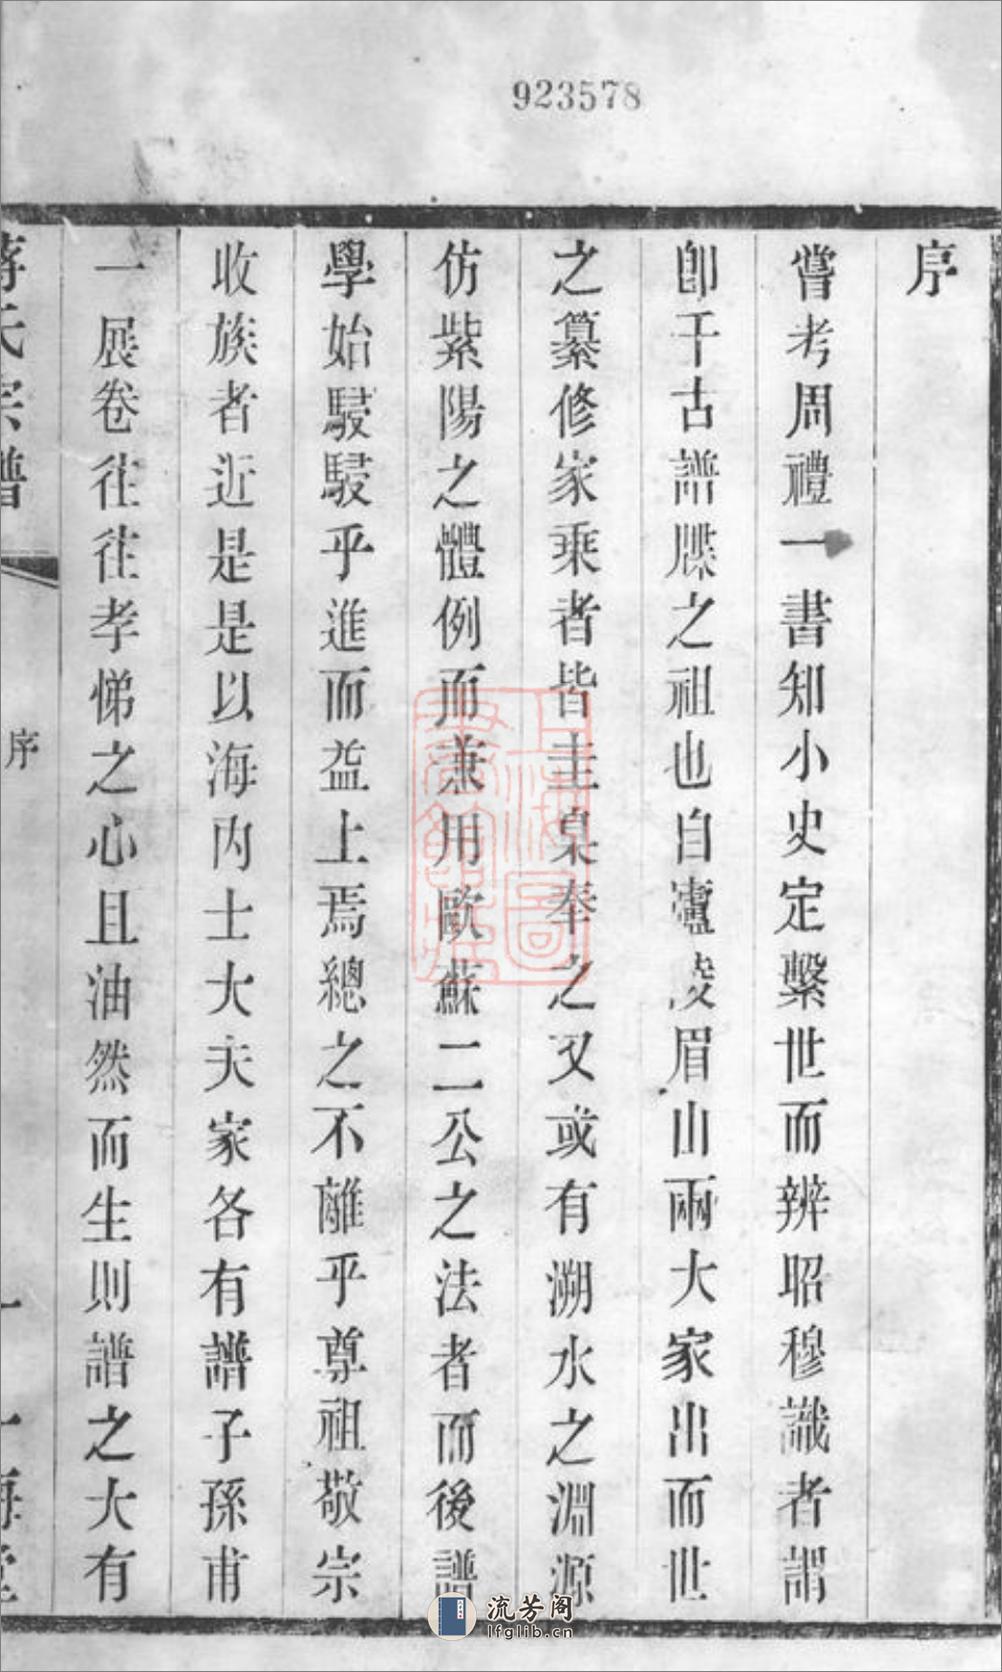 923578
序
嘗考周禮一書知小史定繫世而辨昭穆識者謂
卽千古譜牒之祖也自瀘凌眉山兩大家出而世
之纂修家乘者皆圭臬奉之又或有溯水之淵源
仿紫陽之體例而兼用歐蘇二公之法者而後譜
學始駸駸乎進而益上焉總之不離乎尊祖敬宗
收族者近是是以海內士大夫家各有譜子孫甫
一展卷往往孝悌之心且油然而生則譜之大有
蔣氏宗譜
序
一
一梅堂
上海圖書館藏
流芳阁
lfglib.cn